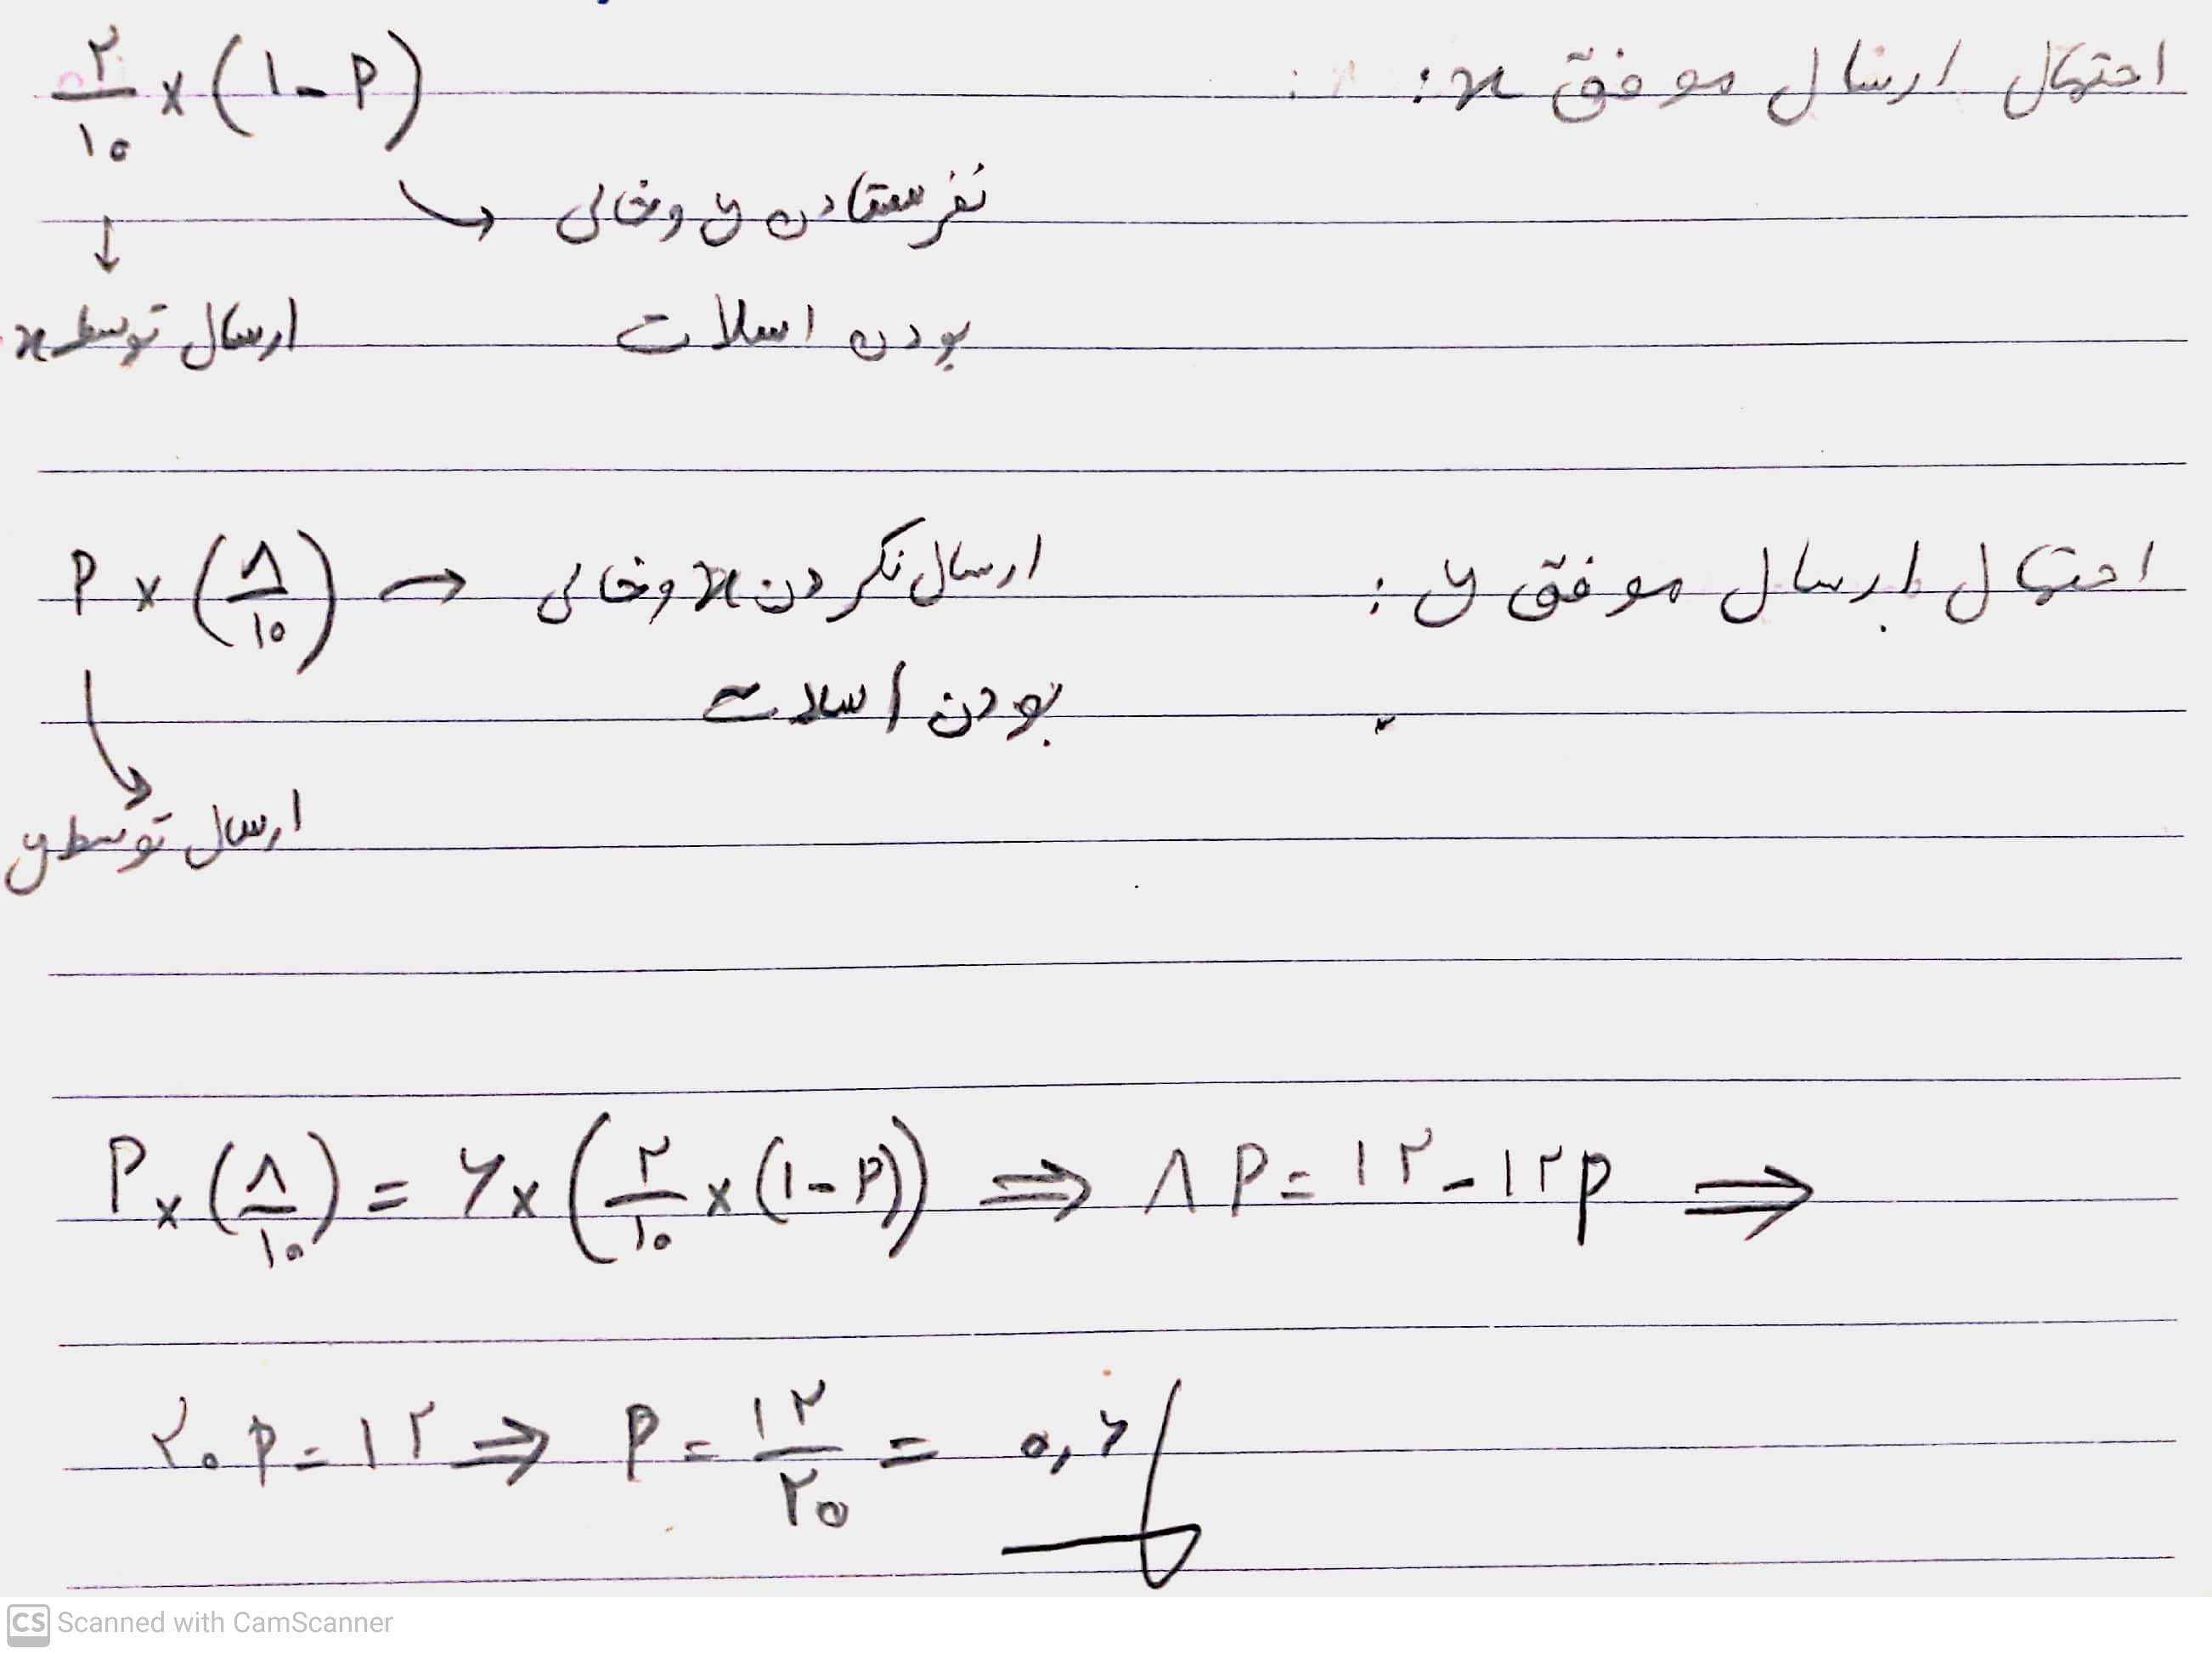 احتمال ارسال موفق x: ۲/۱۰ × (۱-P)
نفرستادن y و خالی
بودن اسلات
ارسال توسط x
احتمال ارسال موفق y: P × (۸/۱۰) → ارسال نکردن x و خالی
بودن اسلات
ارسال توسط y
P × (۸/۱۰) = ۶ × (۲/۱۰ × (۱-P)) ⇒ ۸P = ۱۲-۱۲P ⇒
۲۰P = ۱۲ ⇒ P = ۱۲/۲۰ = ۰,۶
CS Scanned with CamScanner